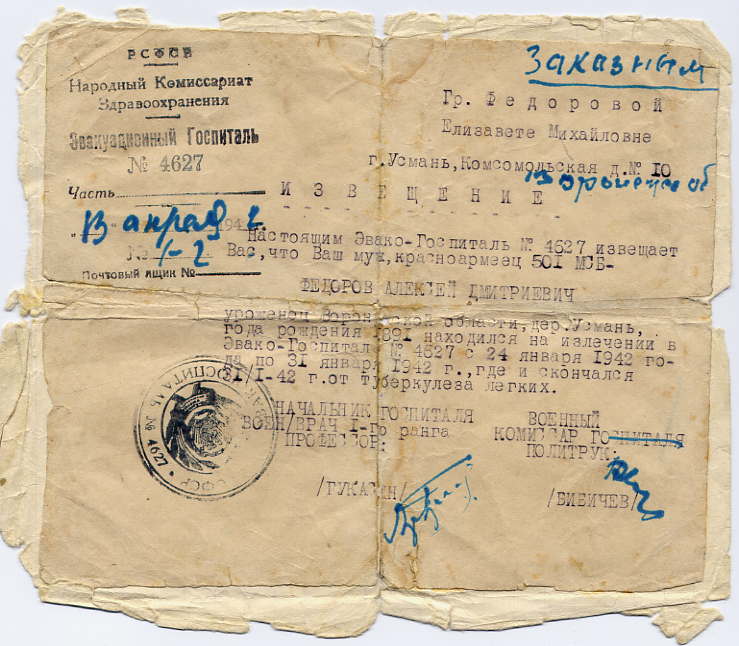 РСФСР
Народный Комиссариат
Здравоохранения
Эвакуационный Госпиталь
№ 4627
Часть
Заказным
Гр. Федоровой
Елизавете Михайловне
г.Усмань, Комсомольская д.№ 10
Воронежск об
ИЗВЕЩЕНИЕ
194 г.
№ 1-2
Почтовый ящик №
Настоящим Эвако-Госпиталь № 4627 извещает
Вас, что Ваш муж, красноармеец 501 МСБ-
ФЕДОРОВ АЛЕКСЕЙ ДМИТРИЕВИЧ
уроженец Воронежской области, дер.Усмань,
года рождения 1891 находился на излечении в
Эвако-Госпитале № 4627 с 24 января 1942 го-
да по 31 января 1942 г., где и скончался
31/I-42 г.от туберкулеза легких.
НАЧАЛЬНИК ГОСПИТАЛЯ
ВОЕН/ВРАЧ I-го ранга
ПРОФЕССОР:
/ГУКАСЯН/
ВОЕННЫЙ
КОМИССАР ГОСПИТАЛЯ
ПОЛИТРУК:
/БИБИЧЕВ/
ЭВАКОГОСПИТАЛЬ № 4627